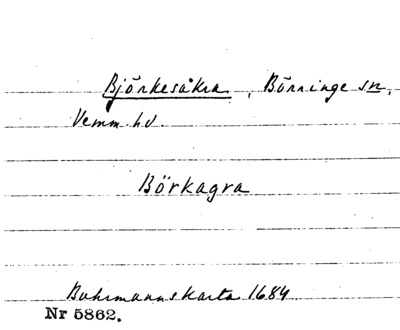 Björkesåkra, Börringe sn,
Vemm. hd.
Börkagra
Buhrmannskarta 1684
Nr 5862.